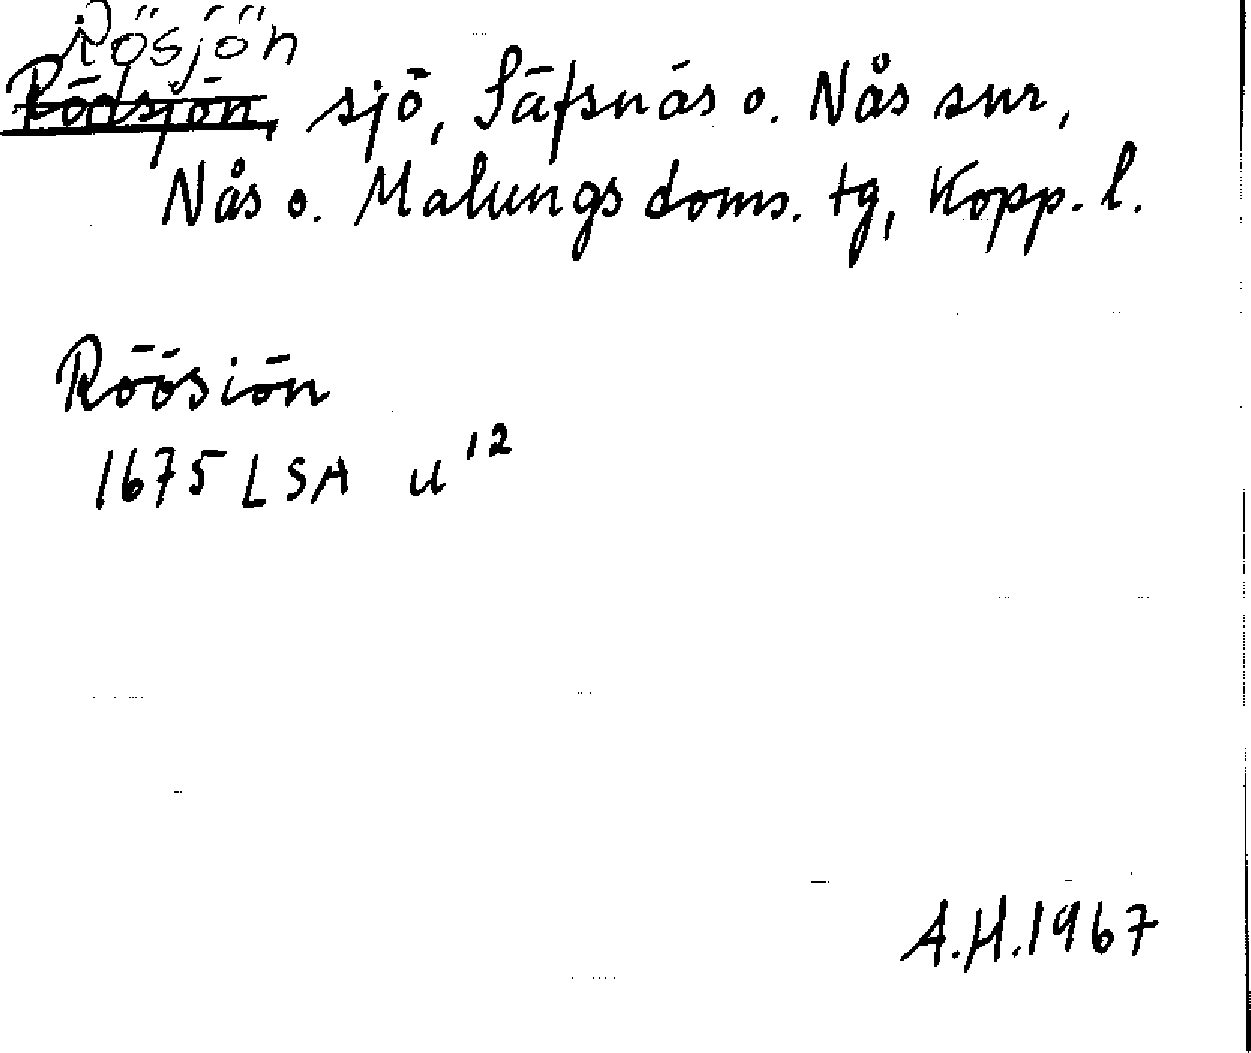 Rösjön
Rödsjön, sjö, Säfsnäs o. Nås snr,
Nås o. Malungs doms. tg, Kopp. l.
Röösiön
1675 LSA u12
A.H. 1967